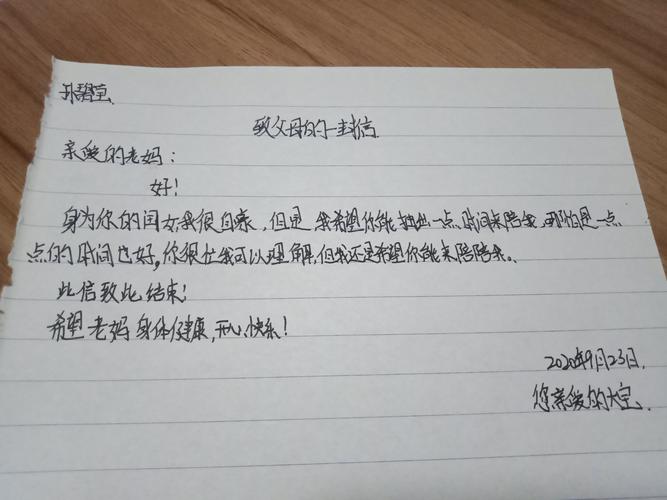 孙碧莹
致父母的一封信
亲爱的老妈：
好！
身为你的闺女我很自豪，但是我希望你能抽出一点时间来陪我，哪怕是一点
点的时间也好，你很忙我可以理解，但我还是希望你能来陪陪我。
此信致此结束！
希望老妈身体健康，开心快乐！
2020年9月23日.
您亲爱的大宝.